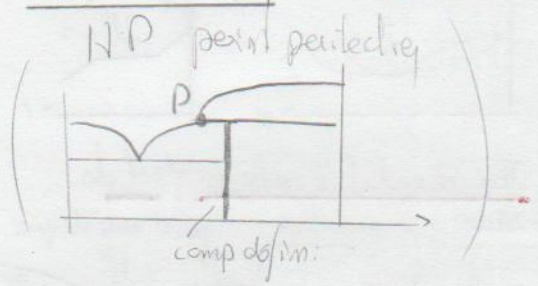 point peritectiq
P
comp défini: